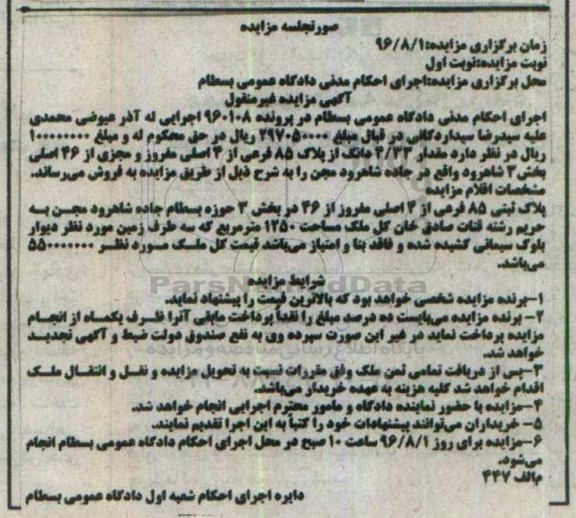 صورتجلسه مزایده
زمان برگزاری مزایده:۹۶/۸/۱
نوبت مزایده:نوبت اول
محل برگزاری مزایده:اجرای احکام مدنی دادگاه عمومی بسطام
آگهی مزایده غیرمنقول
اجرای احکام مدنی دادگاه عمومی بسطام در پرونده ۹۶۰۱۰۸ اجرایی له آذر عیوضی محمدی
علیه سیدرضا سیداردکانی در قبال مبلغ ۲۹۷۰۵۰۰۰۰ ریال در حق محکوم له و مبلغ ۱۰۰۰۰۰۰۰
ریال در نظر دارد مقدار ۳/۳۳ دانگ از پلاک ۸۵ فرعی از ۴ اصلی مفروز و مجزی از ۴۶ اصلی
بخش ۳ شاهرود واقع در جاده شاهرود مجن را به شرح ذیل از طریق مزایده به فروش می‌رساند.
مشخصات اقلام مزایده
پلاک ثبتی ۸۵ فرعی از ۴ اصلی مفروز از ۴۶ در بخش ۳ حوزه بسطام جاده شاهرود مجن به
حریم رشته قنات صادق خان کل ملک مساحت ۱۲۵۰ مترمربع که سه طرف زمین مورد نظر دیوار
بلوک سیمانی کشیده شده و فاقد بنا و امتیاز می‌باشد قیمت کل ملک مورد نظر ۵۵۰۰۰۰۰۰۰
می‌باشد.
شرایط مزایده
۱-برنده مزایده شخصی خواهد بود که بالاترین قیمت را پیشنهاد نماید.
۲- برنده مزایده می‌بایست ده درصد مبلغ را نقداً پرداخت مابقی آنرا ظرف یکماه از انجام
مزایده پرداخت نماید در غیر این صورت سپرده وی به نفع صندوق دولت ضبط و آگهی تجدید
خواهد شد.
۳-پس از دریافت تمامی ثمن ملک وفق مقررات نسبت به تحویل مزایده و نقل و انتقال ملک
اقدام خواهد شد کلیه هزینه به عهده خریدار می‌باشد.
۴-مزایده با حضور نماینده دادگاه و مامور محترم اجرایی انجام خواهد شد.
۵- خریداران می‌توانند پیشنهادات خود را کتباً به این اجرا تقدیم نمایند.
۶-مزایده برای روز ۹۶/۸/۱ ساعت ۱۰ صبح در محل اجرای احکام دادگاه عمومی بسطام انجام
می‌شود.
م‌الف ۴۴۷
دایره اجرای احکام شعبه اول دادگاه عمومی بسطام
ParsNamadData
پایگاه اطلاع رسانی مناقصه و مزایده